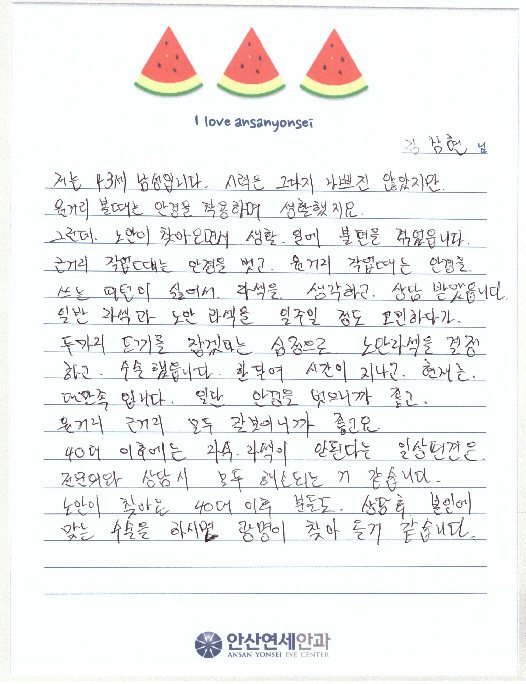 I love ansanyonsei
김상현 님
저는 43세 남성입니다. 시력은 그다지 나쁘진 않았지만
원거리 볼때는 안경을 착용하며 생활했지요.
그런데. 노안이 찾아오면서 생활. 일에 불편을 겪었읍니다.
근거리 작업때는 안경을 벗고. 원거리 작업때는 안경을
쓰는 패턴이 싫어서. 라섹을 생각하고. 상담 받았읍니다.
일반 라섹과 노안 라섹을 일주일 정도 고민하다가.
두마리 토끼를 잡겠다는 심정으로 노안라섹을 결정
하고. 수술했읍니다. 한달여 시간이 지나고. 현재는.
대만족 입니다. 일단 안경을 벗으니까 좋고.
원거리 근거리 모두 잘보이니까 좋고요
40대 이후에는 라식.라섹이 안된다는 일상편견은.
전문의와 상담시 모두 해소되는 거 같습니다.
노안이 찾아온 40대 이후 분들도. 상담후 본인에
맞는 수술을 하시면 광명이 찾아 들거 같습니다.
안산연세안과
ANSAN YONSEI EYE CENTER